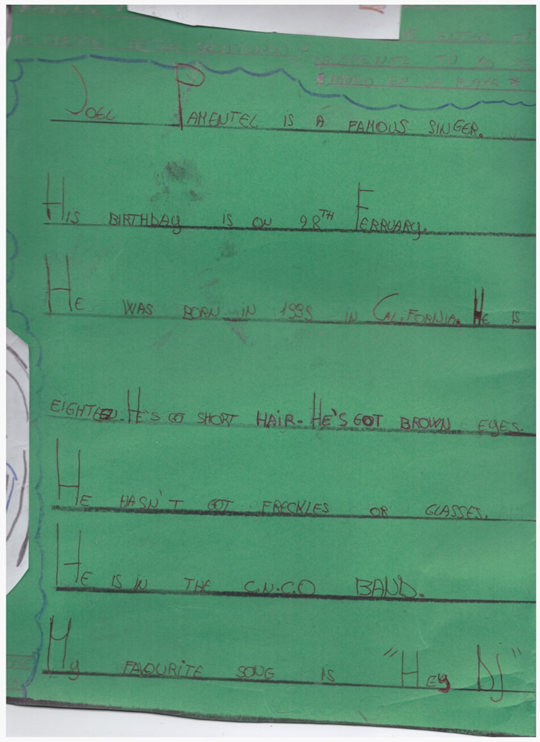 JOEL PAMENTEL IS A FAMOUS SINGER.
HIS BIRTHDAY IS ON 28TH FEBRUARY.
HE WAS BORN IN 1999 IN CALIFORNIA. HE IS
EIGHTEEN. HE'S GOT SHORT HAIR. HE'S GOT BROWN EYES.
HE HASN'T GOT FRECKLES OR GLASSES.
HE IS IN THE C.N.C.O BAND.
My FAVOURITE SONG IS "HEy DJ"